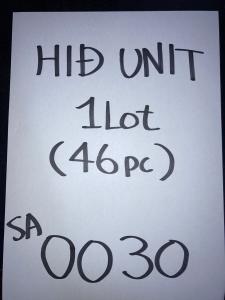 HIĐ UNIT
1Lot
(46pc)
SA 0030